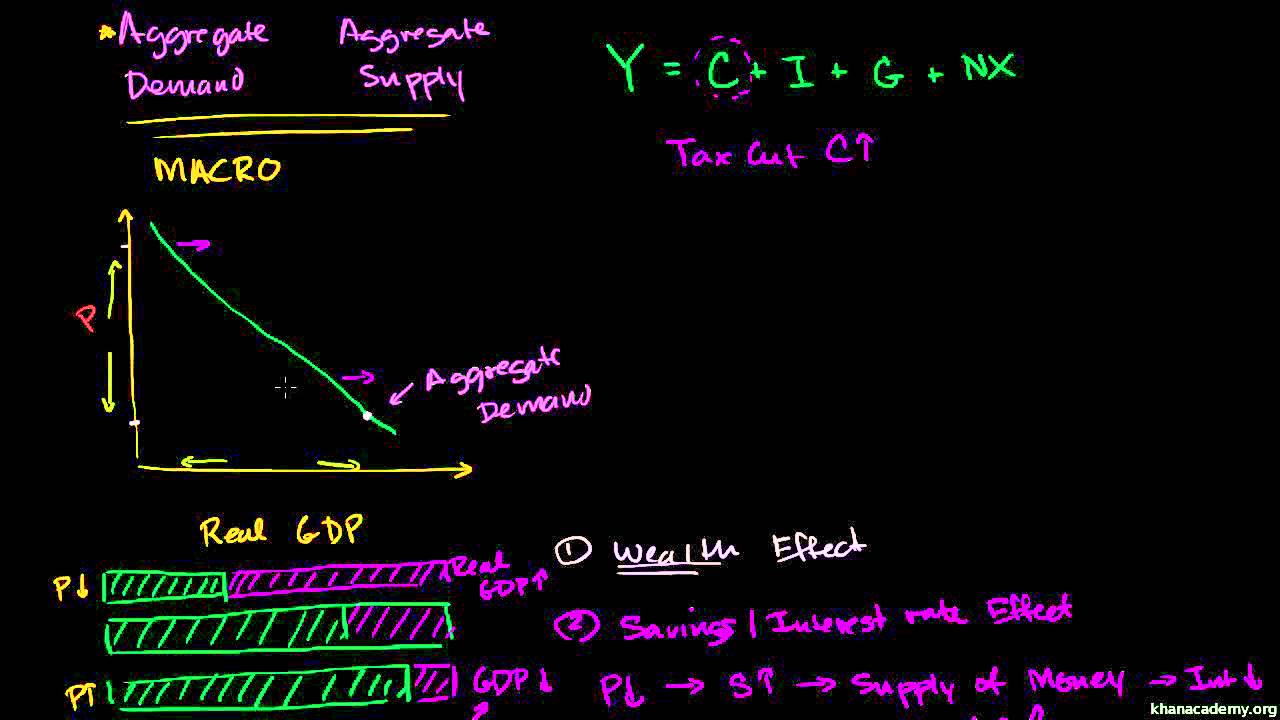 Aggregate Demand
Aggregate Supply
MACRO
Y = C + I + G + NX
Tax Cut C↑
P
Aggregate
Demand
Real GDP
P↓
Real
GDP↑
P↑
GDP ↓
① Wealth Effect
② Savings / Interest rate Effect
P↓ → S↑ → Supply of Money → Int ↓
khanacademy.org